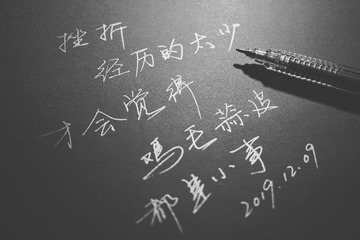 挫折
经历的太少
才会觉得
鸡毛蒜皮
都是小事
2019.12.09